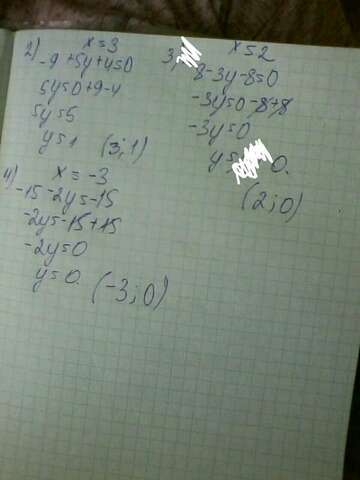 2) x=3
-9+5y+4=0
5y=0+9-4
5y=5
y=1 (3;1)
3) x=2
8-3y-8=0
-3y=0-8+8
-3y=0
y= 0.
(2;0)
4) x=-3
-15-2y=-15
-2y=-15+15
-2y=0
y=0. (-3;0)